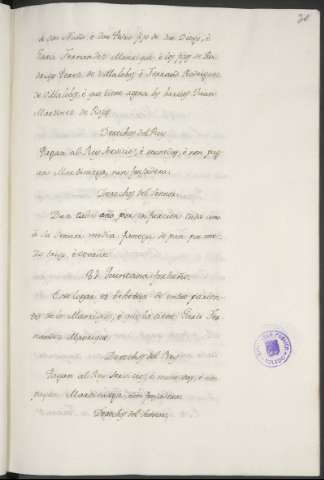 20
de don Nuño, e don Pedro fijo de don Diego, è
Garci Fernandez Manrique, è los fijos de Ro-
drigo Perez de Villalobos, è Fernand Rodriguez
de Villalobos, è que tiene agora los Juan
Martinez de
Derechos del Rey
Pagan al Rey servicios, è monedas, è non pa-
gan Martiniega, nin fonsadera.
Derechos del Señor
Dan cada año, por infurcion cada uno
à la Señora media fanega de pan por me-
dio trigo, è cevada.
Quintana
Este lugar es Behetria de
de los Manriques, è que la tiene Garci Fer-
nandez Manrique
Derechos del Rey
Pagan al Rey servicios, è monedas, è non
pagan Martiniega, nin fonsadera
Derechos del Señor
BIBLIOTECA PUBLICA
TOLEDO